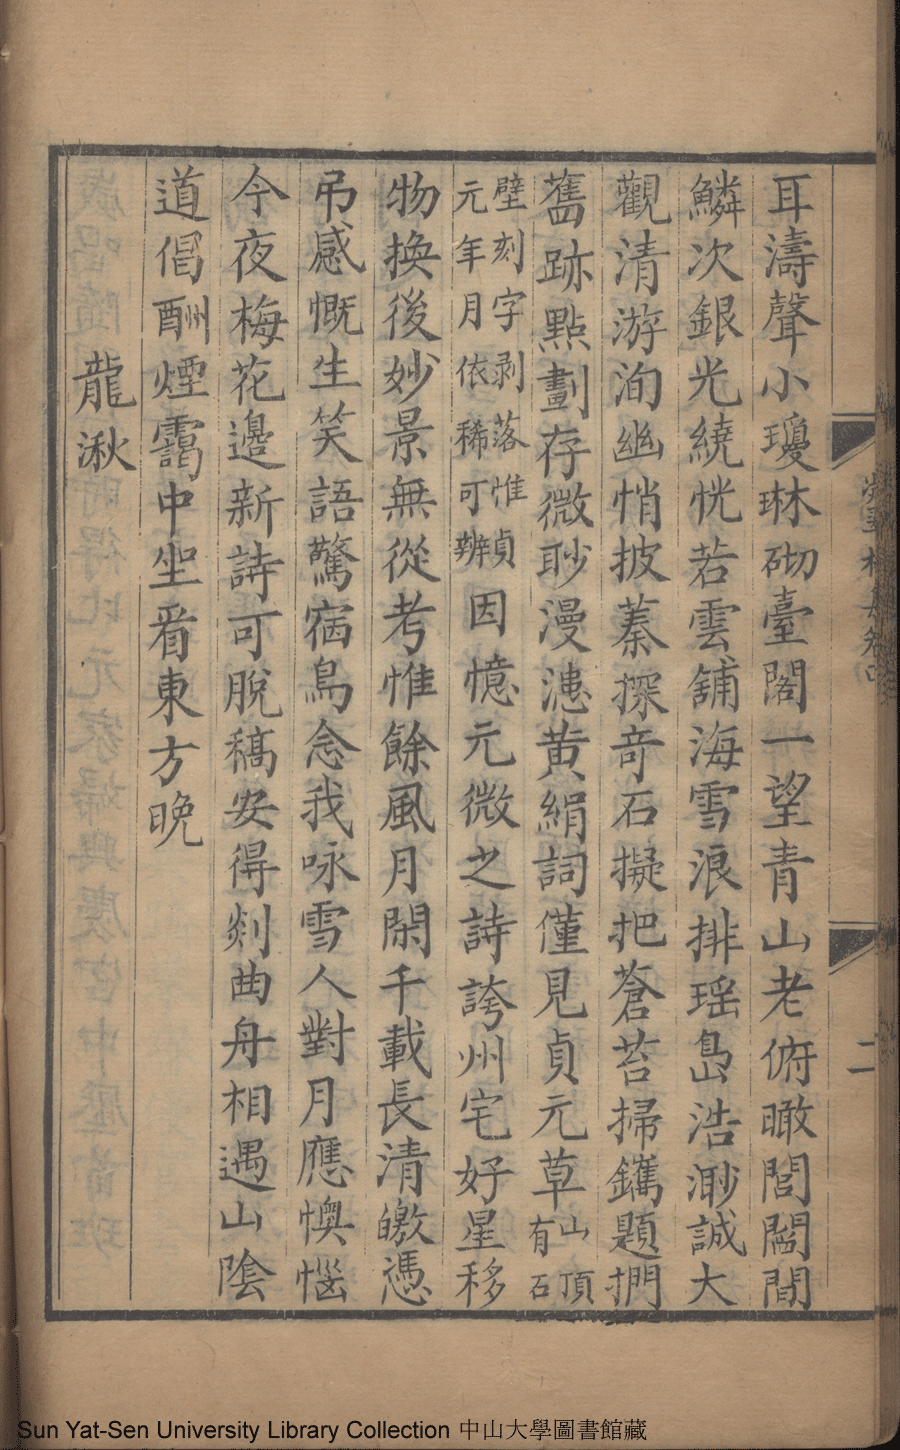 耳濤聲小瓊琳砌臺閣一望青山老俯瞰閭闔間
鱗次銀光繞恍若雲舖海雪浪排瑶島浩渺誠大
觀清游洵幽悄披蓁探奇石擬把蒼苔掃鐫題捫
舊跡點劃存微眇漫漶黄絹詞僅見貞元草山頂有石
壁刻字剥落惟貞元年月依稀可辨因憶元微之詩誇州宅好星移
物換後妙景無從考惟餘風月閑千載長清皦憑
弔感慨生笑語驚宿鳥念我咏雪人對月應懊惱
今夜梅花邊新詩可脫稿安得剡曲舟相遇山陰
道倡酬煙靄中坐看東方晚
龍湫
卷四
二
Sun Yat-Sen University Library Collection 中山大學圖書館藏